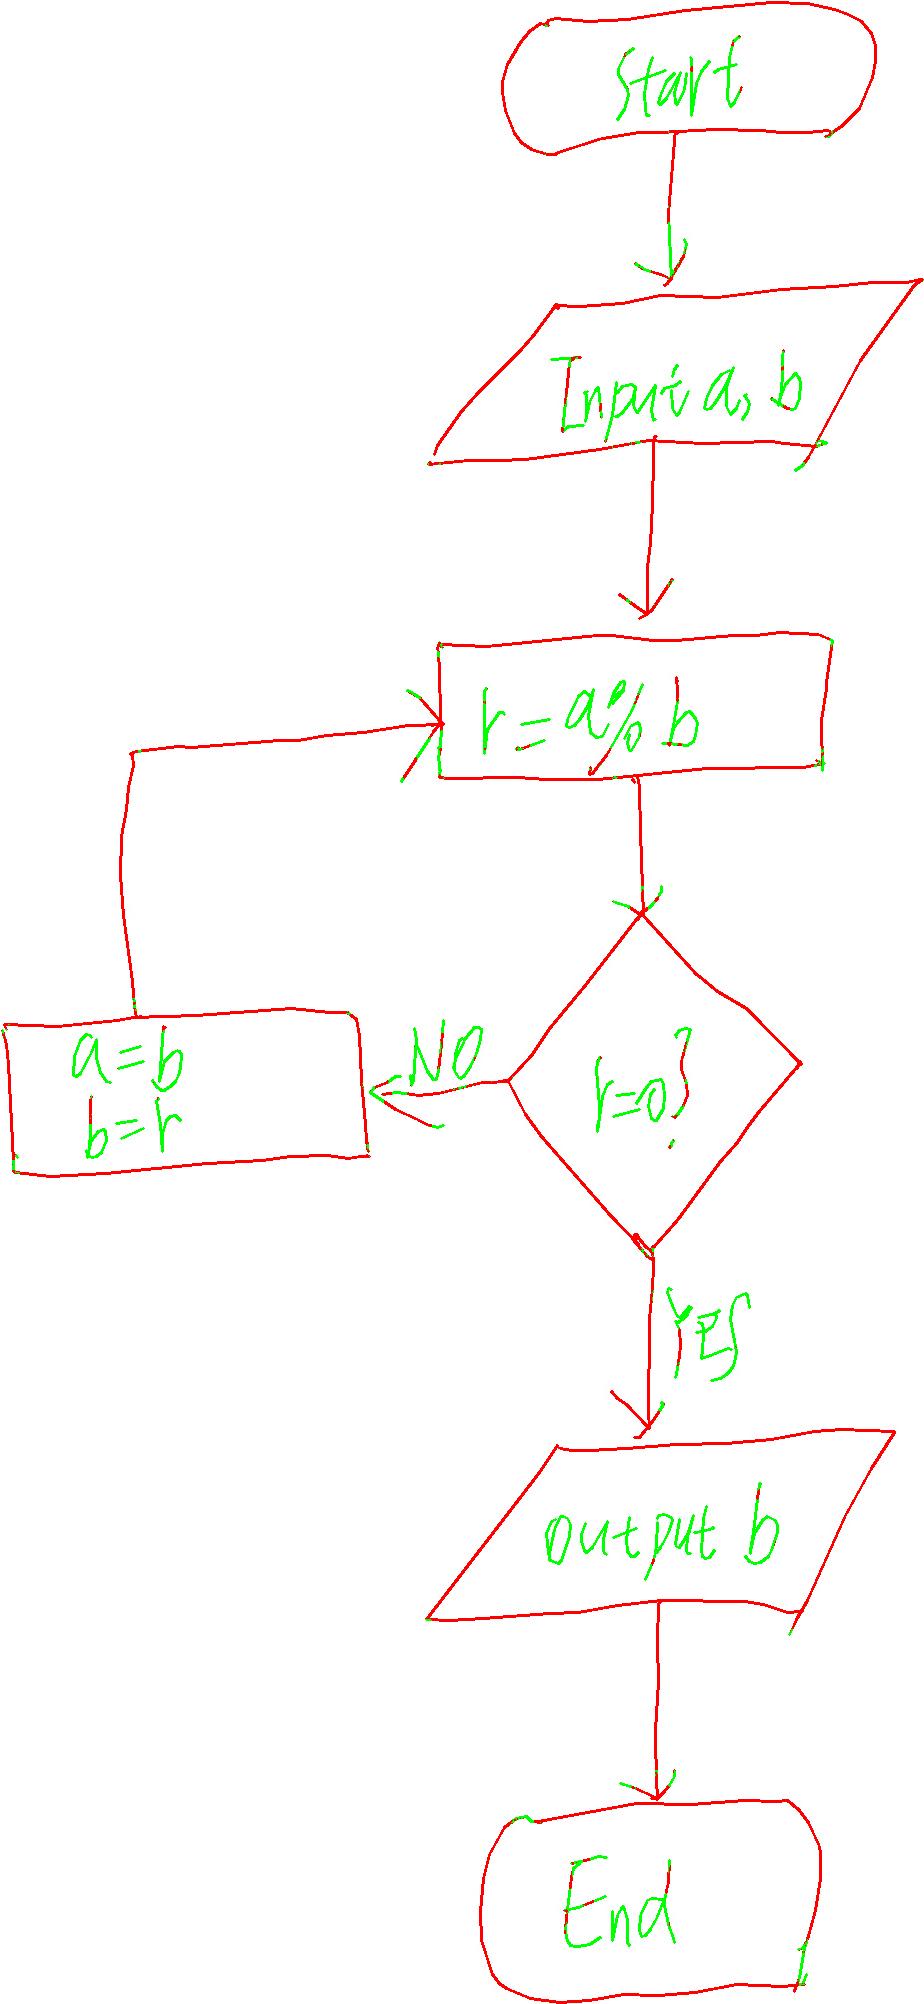 Start
Input a, b
r = a % b
r=0?
NO
a = b
b = r
YES
output b
End